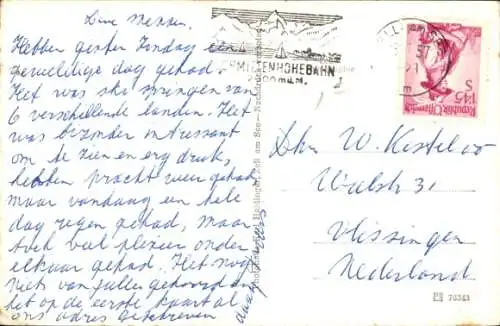 Lieve Mensen.
Hebben gister Zondag een
geweldige dag gehad.
Het was ski springen van
6 verschillende landen. Het
was bizonder intressant
om te zien en erg druk,
hebben pracht weer gehad
maar vandaag een hele
dag regen gehad, maar
toch veel plezier onder
elkaar gehad. Het nog
niets van jullie gehoord en
het op de eerste kaart al
ons adres geschreven
SCHMITTENHÖHEBAHN
2000 m ü. M.
Zell am See
Republik Österreich
S 1'45
Dhr W. Kesteloo
Walstr 31
Vlissingen
Nederland
70363